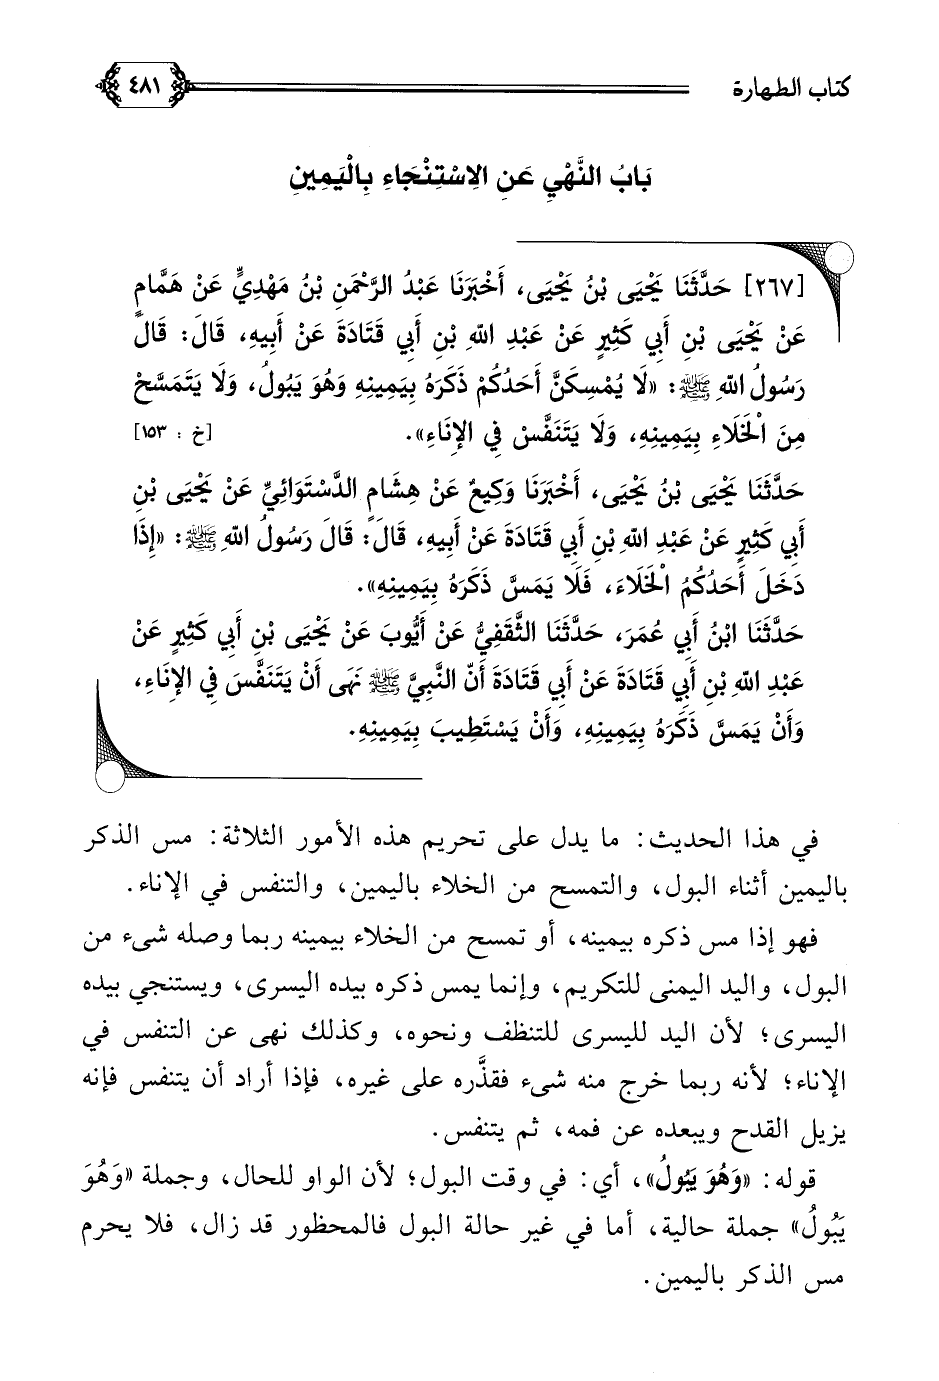 كتاب الطهارة
٤٨١
بَابُ النَّهْيِ عَنِ الِاسْتِنْجَاءِ بِالْيَمِينِ
[٢٦٧] حَدَّثَنَا يَحْيَى بْنُ يَحْيَى، أَخْبَرَنَا عَبْدُ الرَّحْمَنِ بْنُ مَهْدِيٍّ عَنْ هَمَّامٍ
عَنْ يَحْيَى بْنِ أَبِي كَثِيرٍ عَنْ عَبْدِ اللهِ بْنِ أَبِي قَتَادَةَ عَنْ أَبِيهِ، قَالَ: قَالَ
رَسُولُ اللهِ ﷺ: «لَا يُمْسِكَنَّ أَحَدُكُمْ ذَكَرَهُ بِيَمِينِهِ وَهُوَ يَبُولُ، وَلَا يَتَمَسَّحْ
مِنَ الْخَلَاءِ بِيَمِينِهِ، وَلَا يَتَنَفَّسْ فِي الإِنَاءِ». [خ : ١٥٣]
حَدَّثَنَا يَحْيَى بْنُ يَحْيَى، أَخْبَرَنَا وَكِيعٌ عَنْ هِشَامٍ الدَّسْتَوَائِيِّ عَنْ يَحْيَى بْنِ
أَبِي كَثِيرٍ عَنْ عَبْدِ اللهِ بْنِ أَبِي قَتَادَةَ عَنْ أَبِيهِ، قَالَ: قَالَ رَسُولُ اللهِ ﷺ: «إِذَا
دَخَلَ أَحَدُكُمُ الْخَلَاءَ، فَلَا يَمَسَّ ذَكَرَهُ بِيَمِينِهِ».
حَدَّثَنَا ابْنُ أَبِي عُمَرَ، حَدَّثَنَا الثَّقَفِيُّ عَنْ أَيُّوبَ عَنْ يَحْيَى بْنِ أَبِي كَثِيرٍ عَنْ
عَبْدِ اللهِ بْنِ أَبِي قَتَادَةَ عَنْ أَبِي قَتَادَةَ أَنَّ النَّبِيَّ ﷺ نَهَى أَنْ يَتَنَفَّسَ فِي الإِنَاءِ،
وَأَنْ يَمَسَّ ذَكَرَهُ بِيَمِينِهِ، وَأَنْ يَسْتَطِيبَ بِيَمِينِهِ.
في هذا الحديث: ما يدل على تحريم هذه الأمور الثلاثة: مس الذكر
باليمين أثناء البول، والتمسح من الخلاء باليمين، والتنفس في الإناء.
فهو إذا مس ذكره بيمينه، أو تمسح من الخلاء بيمينه ربما وصله شيء من
البول، واليد اليمنى للتكريم، وإنما يمس ذكره بيده اليسرى، ويستنجي بيده
اليسرى؛ لأن اليد لليسرى للتنظف ونحوه، وكذلك نهى عن التنفس في
الإناء؛ لأنه ربما خرج منه شيء فقذَّره على غيره، فإذا أراد أن يتنفس فإنه
يزيل القدح ويبعده عن فمه، ثم يتنفس.
قوله: «وَهُوَ يَبُولُ»، أي: في وقت البول؛ لأن الواو للحال، وجملة «وَهُوَ
يَبُولُ» جملة حالية، أما في غير حالة البول فالمحظور قد زال، فلا يحرم
مس الذكر باليمين.